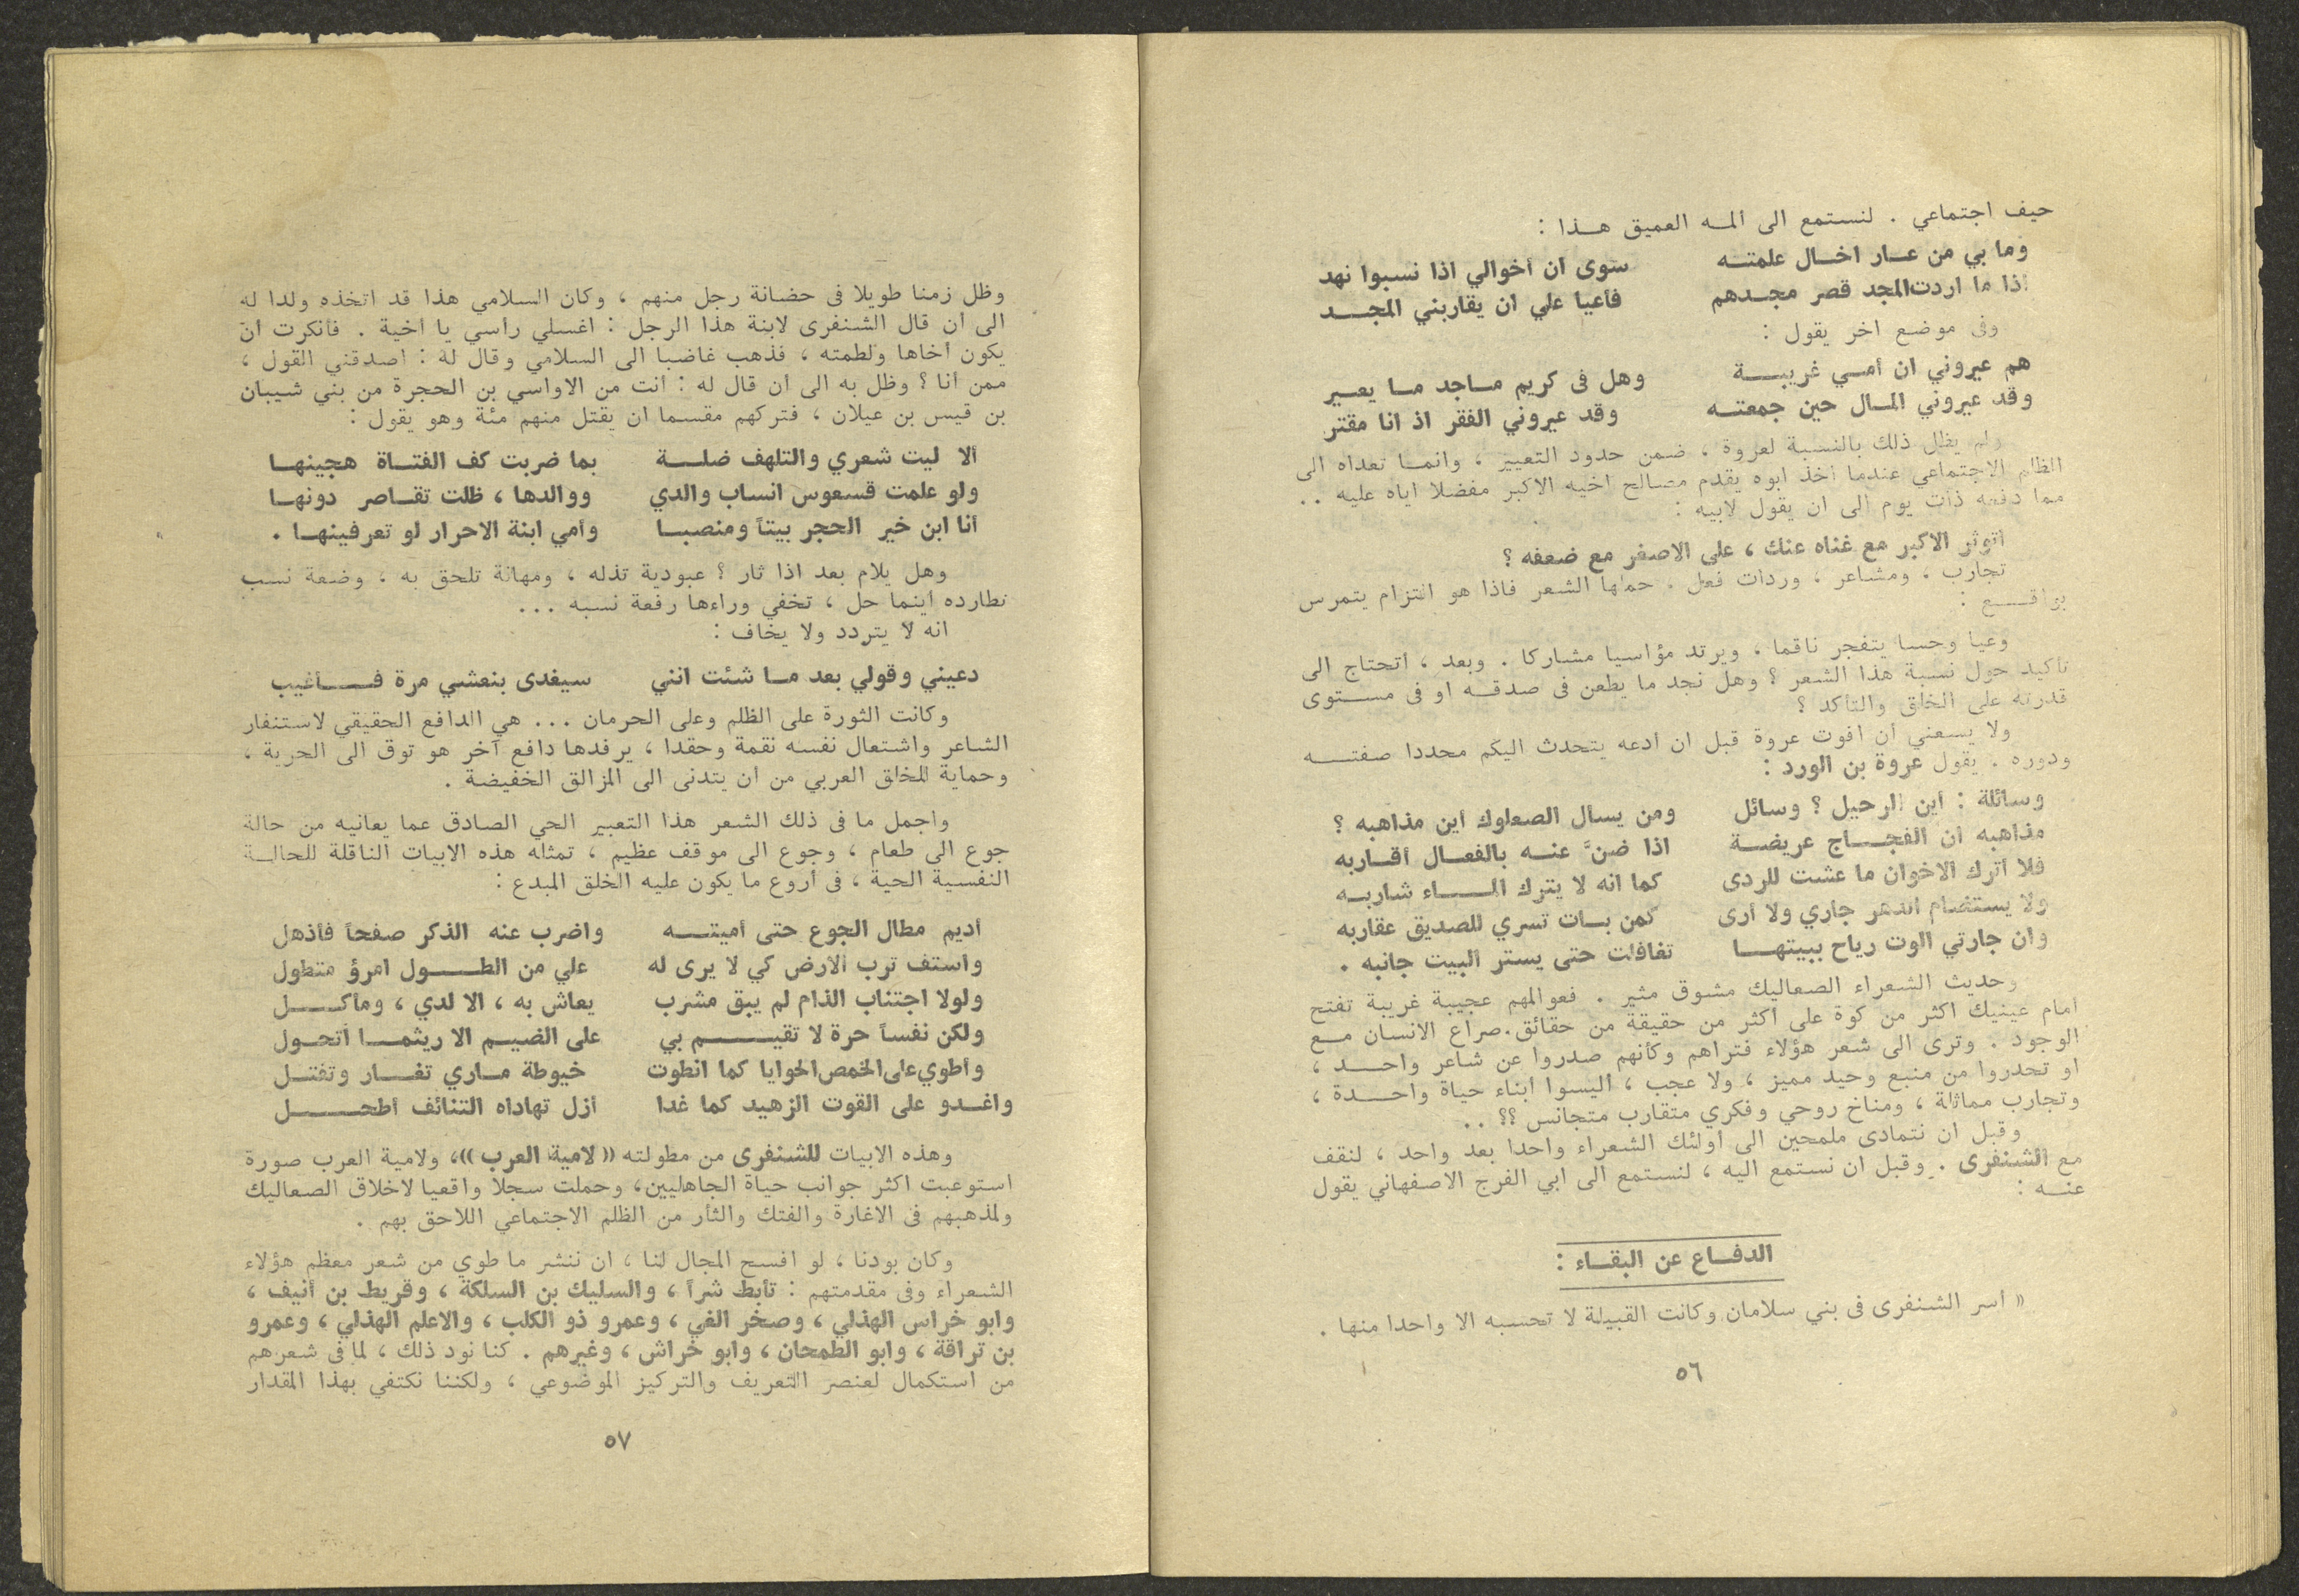 حيف اجتماعي . لنستمع الى ألمه العميق هذا :
وما بي من عار اخال علمته سوى ان أخوالي اذا نسبوا نهد
اذا ما اردت المجد قصر مجدهم فأعيا علي ان يقاربني المجد
وفى موضع اخر يقول :
هم عيروني ان أمي غريبة وهل فى كريم ماجد ما يعير
وقد عيروني المال حين جمعته وقد عيروني الفقر اذ انا مقتر
ولم يظل ذلك بالنسبة لعروة ، ضمن حدود التعيير ، وانما تعداه الى
الظلم الاجتماعي عندما أخذ ابوه يقدم مصالح اخيه الاكبر مفضلا اياه عليه ..
مما دفعه ذات يوم الى ان يقول لابيه :
اتوثر الاكبر مع غناه عنك ، على الاصغر مع ضعفه ؟
تجارب ، ومشاعر ، وردات فعل . حملها الشعر فاذا هو التزام يتمرس
بواقع :
وعيا وحسا يتفجر ناقما ، ويرتد مؤاسيا مشاركا . وبعد ، أتحتاج الى
تأكيد حول نسبة هذا الشعر ؟ وهل نجد ما يطعن فى صدقه او فى مستوى
قدرته على الخلق والتأكد ؟
ولا يسعني أن افوت عروة قبل ان أدعه يتحدث اليكم محددا صفته
ودوره . يقول عروة بن الورد :
وسائلة : أين الرحيل ؟ وسائل ومن يسأل الصعلوك أين مذاهبه ؟
مذاهبه أن الفجاج عريضة اذا ضنَّ عنه بالفعال أقاربه
فلا أترك الاخوان ما عشت للردى كما انه لا يترك الماء شاربه
ولا يستضام الدهر جاري ولا أرى كمن بات تسري للصديق عقاربه
وان جارتي الوت رياح ببيتها تغافلت حتى يستر البيت جانبه .
وحديث الشعراء الصعاليك مشوق مثير . فعوالمهم عجيبة غريبة تفتح
أمام عينيك اكثر من كوة على أكثر من حقيقة من حقائق. صراع الانسان مع
الوجود . وترى الى شعر هؤلاء فتراهم وكأنهم صدروا عن شاعر واحد ،
او تحدروا من منبع وحيد مميز ، ولا عجب ، أليسوا ابناء حياة واحدة ،
وتجارب مماثلة ، ومناخ روحي وفكري متقارب متجانس ؟؟ ..
وقبل ان نتمادى ملمحين الى أولئك الشعراء واحدا بعد واحد ، لنقف
مع الشنفرى . وقبل ان نستمع اليه ، لنستمع الى ابي الفرج الاصفهاني يقول
عنه :
الدفاع عن البقاء :
« أسر الشنفرى فى بني سلامان وكانت القبيلة لا تحسبه الا واحدا منها .
٥٦
وظل زمنا طويلا فى حضانة رجل منهم ، وكان السلامي هذا قد اتخذه ولدا له
الى أن قال الشنفرى لابنة هذا الرجل : اغسلي رأسي يا أخية . فأنكرت أن
يكون أخاها ولطمته ، فذهب غاضبا الى السلامي وقال له : اصدقني القول ،
ممن أنا ؟ وظل به الى أن قال له : أنت من الاواسي بن الحجرة من بني شيبان
بن قيس بن عيلان ، فتركهم مقسما ان يقتل منهم مئة وهو يقول :
ألا ليت شعري والتلهف ضلة بما ضربت كف الفتاة هجينها
ولو علمت قسعوس انساب والدي ووالدها ، ظلت تقاصر دونها
أنا ابن خير الحجر بيتاً ومنصبا وأمي ابنة الاحرار لو تعرفينها .
وهل يلام بعد اذا ثار ؟ عبودية تذله ، ومهانة تلحق به ، وضعة نسب
تطارده أينما حل ، تخفي وراءها رفعة نسبه ...
انه لا يتردد ولا يخاف :
دعيني وقولي بعد ما شئت انني سيغدى بنعشي مرة فأغيب
وكانت الثورة على الظلم وعلى الحرمان ... هي الدافع الحقيقي لاستنفار
الشاعر واشتعال نفسه نقمة وحقدا ، يرفدها دافع آخر هو توق الى الحرية ،
وحماية للخلق العربي من أن يتدنى الى المزالق الخفيضة .
واجمل ما فى ذلك الشعر هذا التعبير الحي الصادق عما يعانيه من حالة
جوع الى طعام ، وجوع الى موقف عظيم ، تمثله هذه الابيات الناقلة للحالة
النفسية الحية ، فى أروع ما يكون عليه الخلق المبدع :
أديم مطال الجوع حتى أميته واضرب عنه الذكر صفحاً فأذهل
واستف ترب الارض كي لا يرى له علي من الطول امرؤ متطول
ولولا اجتناب الذام لم يبق مشرب يعاش به ، الا لدي ، ومأكل
ولكن نفساً حرة لا تقيم بي على الضيم الا ريثما أتحول
وأطوي على الخمص الحوايا كما انطوت خيوطة ماري تغار وتفتل
واغدو على القوت الزهيد كما غدا أزل تهاداه التنائف أطحل
وهذه الابيات للشنفرى من مطولته «لامية العرب»، ولامية العرب صورة
استوعبت اكثر جوانب حياة الجاهليين، وحملت سجلا واقعيا لاخلاق الصعاليك
ولمذهبهم فى الاغارة والفتك والثأر من الظلم الاجتماعي اللاحق بهم .
وكان بودنا ، لو افسح المجال لنا ، ان ننشر ما طوي من شعر معظم هؤلاء
الشعراء وفى مقدمتهم : تأبط شراً ، والسليك بن السلكة ، وقريط بن أنيف ،
وابو خراس الهذلي ، وصخر الغي ، وعمرو ذو الكلب ، والاعلم الهذلي ، وعمرو
بن تراقة ، وابو الطمحان ، وابو خراش ، وغيرهم . كنا نود ذلك ، لما فى شعرهم
من استكمال لعنصر التعريف والتركيز الموضوعي ، ولكننا نكتفي بهذا المقدار
٥٧